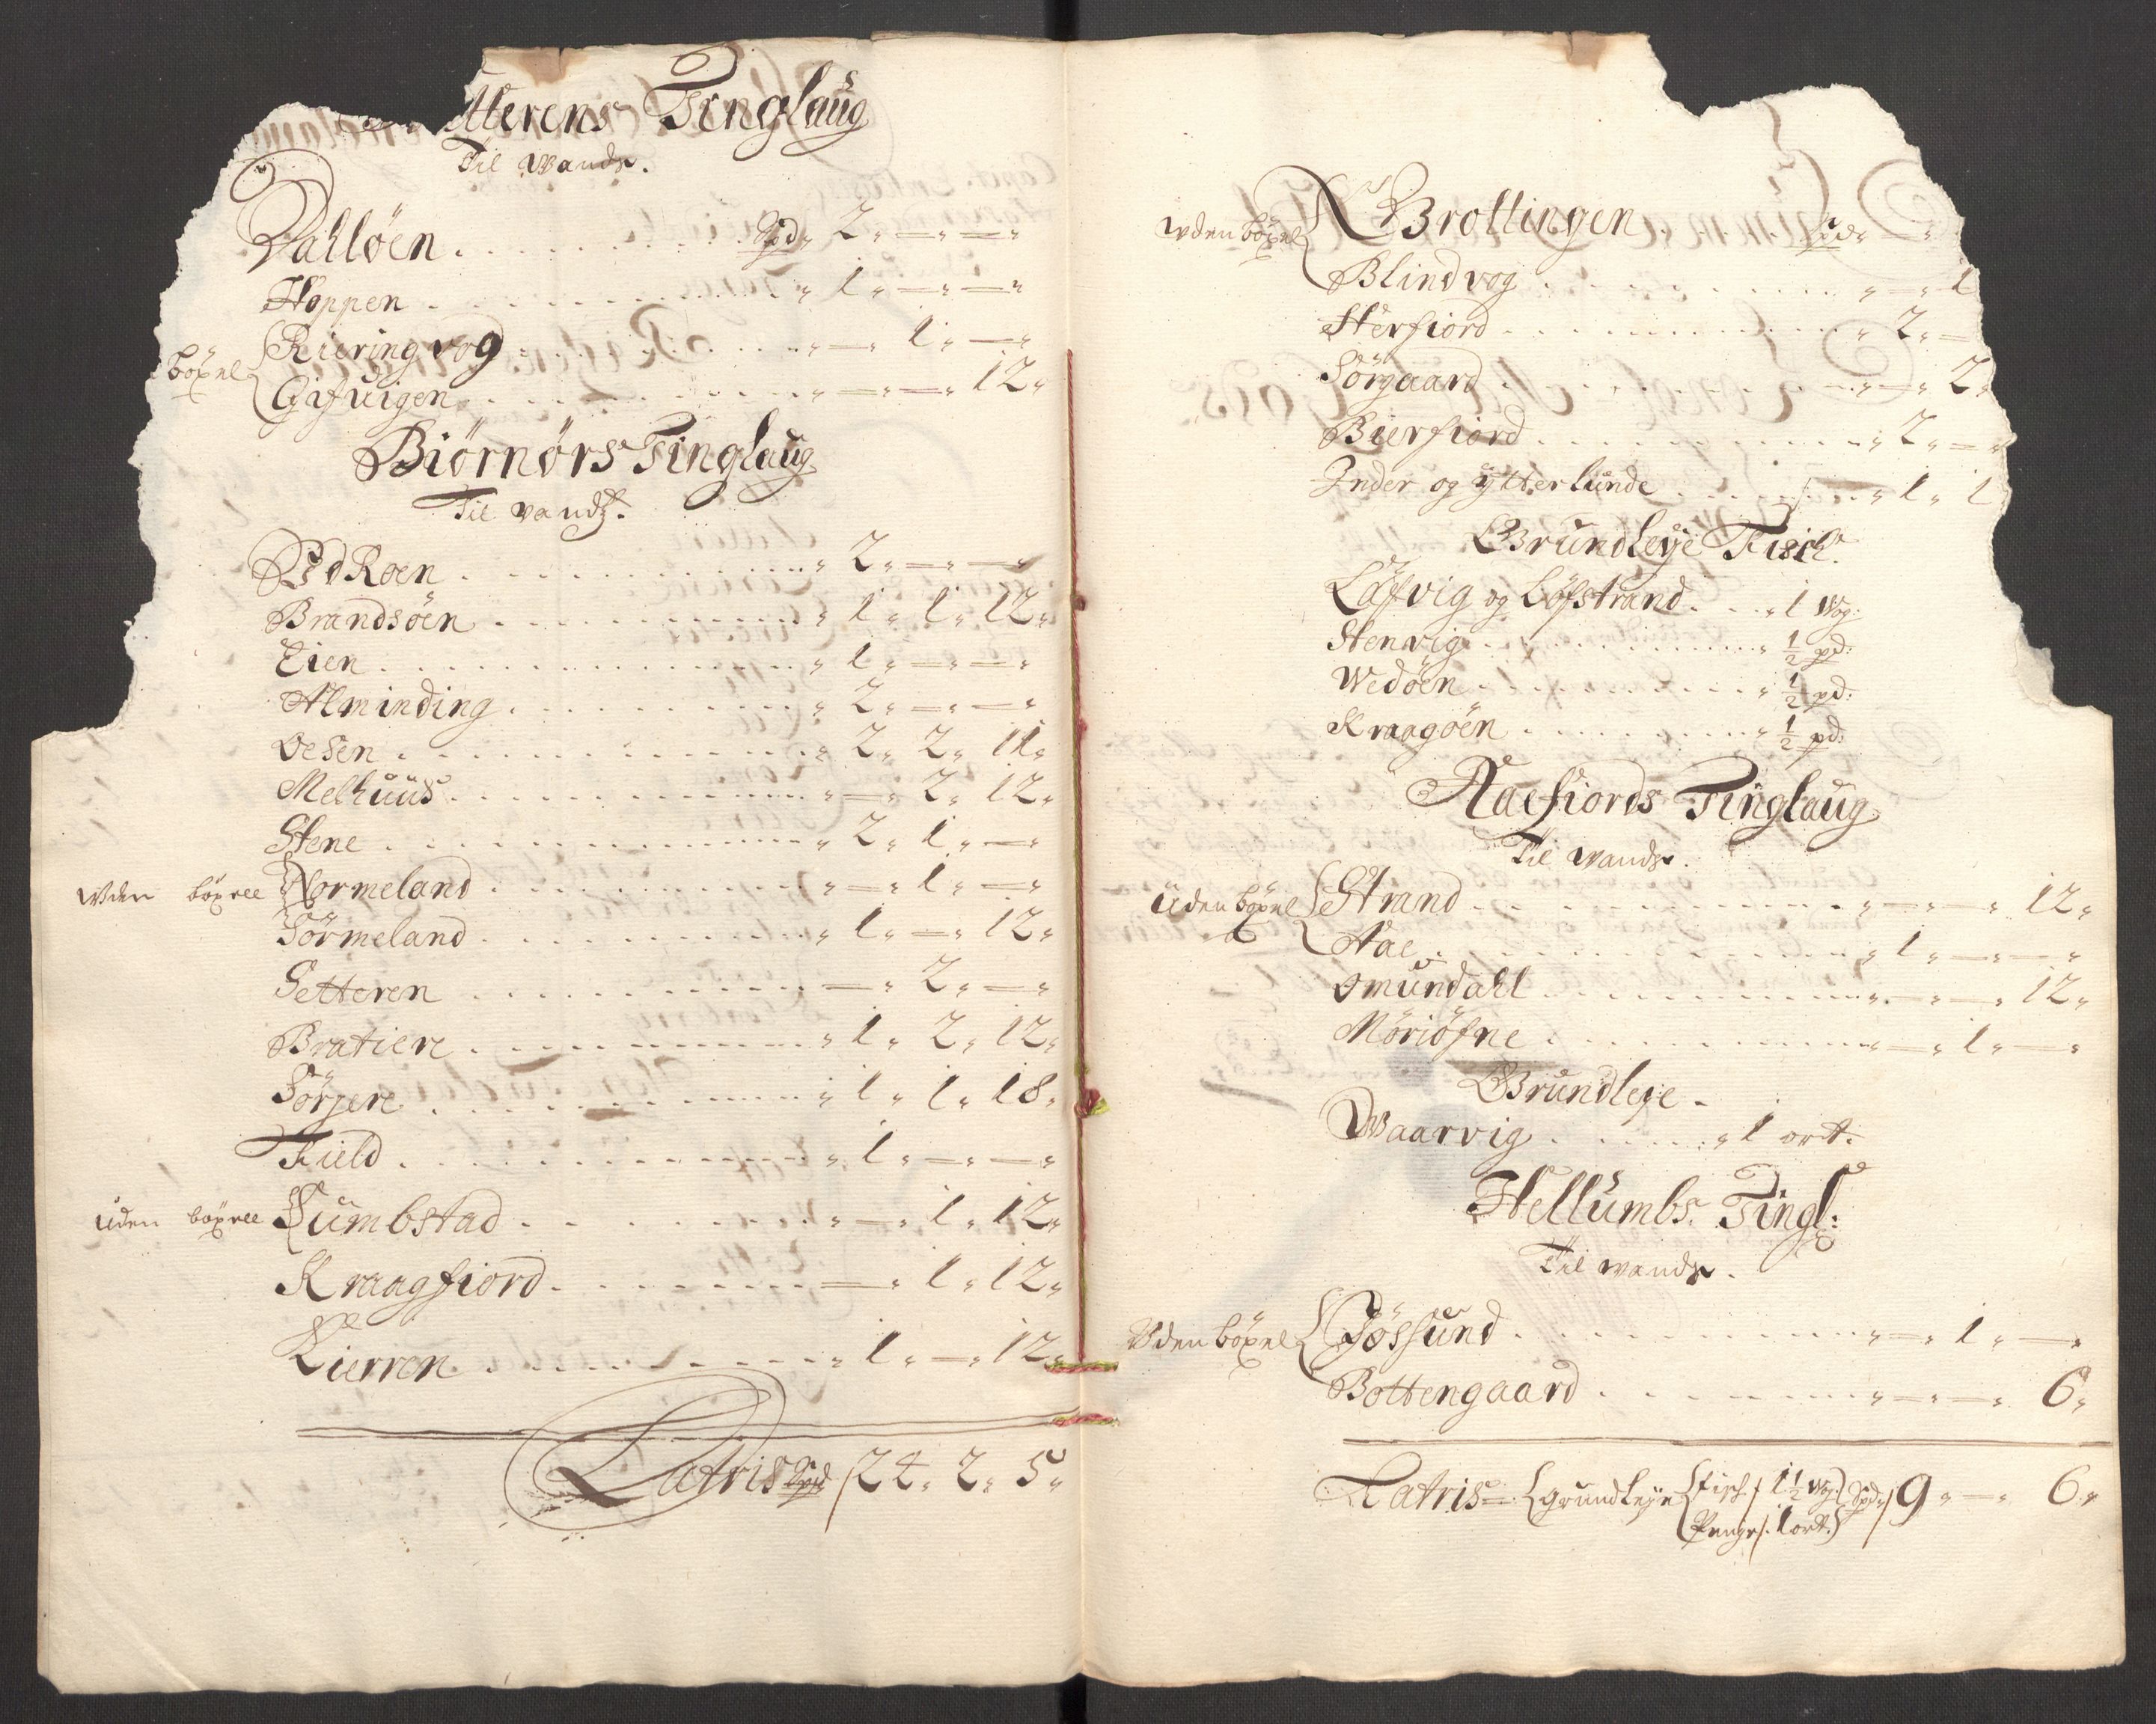 tterens Tinglaug
Til Wands.
Dahlöen . . . . Spd„ 2„ —„ —„
Hoppen . . . . „ 1„ —„ —„
Riering vog . . . . „ —„ 1„ —„
böxel Gifvigen . . . . „ —„ —„ 12„
Biörnörs Tinglaug
Til vands.
Roen . . . . „ 2„ —„ —„
Brandsöen . . . . „ 1„ 1„ 12„
Eien . . . . „ 1„ —„ —„
Alminding . . . . „ 2„ —„ —„
Oesen . . . . „ 2„ 2„ 11„
Melhuus . . . . „ —„ 2„ 12„
Stene . . . . „ 2„ 1„ —„
Uden böxell Normeland . . . . „ —„ 1„ —„
Sörmeland . . . . „ 1„ —„ 12„
Setteren . . . . —„ 2„ —„
Bratiere . . . . „ 1„ 2„ 12„
Sörjere . . . . „ 1„ 1„ 18„
Field . . . . „ 1„ —„ —„
uden böxell Sumbstad . . . . „ —„ 1„ 12„
Kraagfiord . . . . —„ 1„ 12„
Kierren . . . . „ 1„ —„ 12„
Latris Spd 24„ 2„ 5„
uden böxel Brottingen . . . . Spd„ —„
Blindvog . . . . „ —„ 1
Sterfiord . . . . „ 2„ —
Sörgaard . . . . „ —„ 2„
Bierfiord . . . . „ 2„ —„
Inder og ytterlunde . . . . „ 1„ 1
Grundleye Fisch.
Lafvig og Löfstrand . . . „ 1 Vog:
Stenvig . . . . „ ½ pd:
Wedöen . . . . „ ½ pd:
Kraagöen . . . . „ ½ pd:
Aaefiords Tinglaug
Til Wands.
Uden böxel Strand . . . . „ —„ —„ 12„
Aae . . . . „ 1„ —„ —„
Omundahl . . . . „ —„ —„ 12„
Möriöfne . . . . „ —„ 1„ —„
Grundleye.
Waarvig . . . . „ 1 ort.
Hellumbs Tingl:
Til wands.
Uden böxel Jössund . . . . „ —„ 1„ —„
Bottengaard . . . . „ —„ —„ 6„
Latris Grundleye Fisch 1½ Vog: Spd„ 9„ —„ 6„
Penge 1 ort.